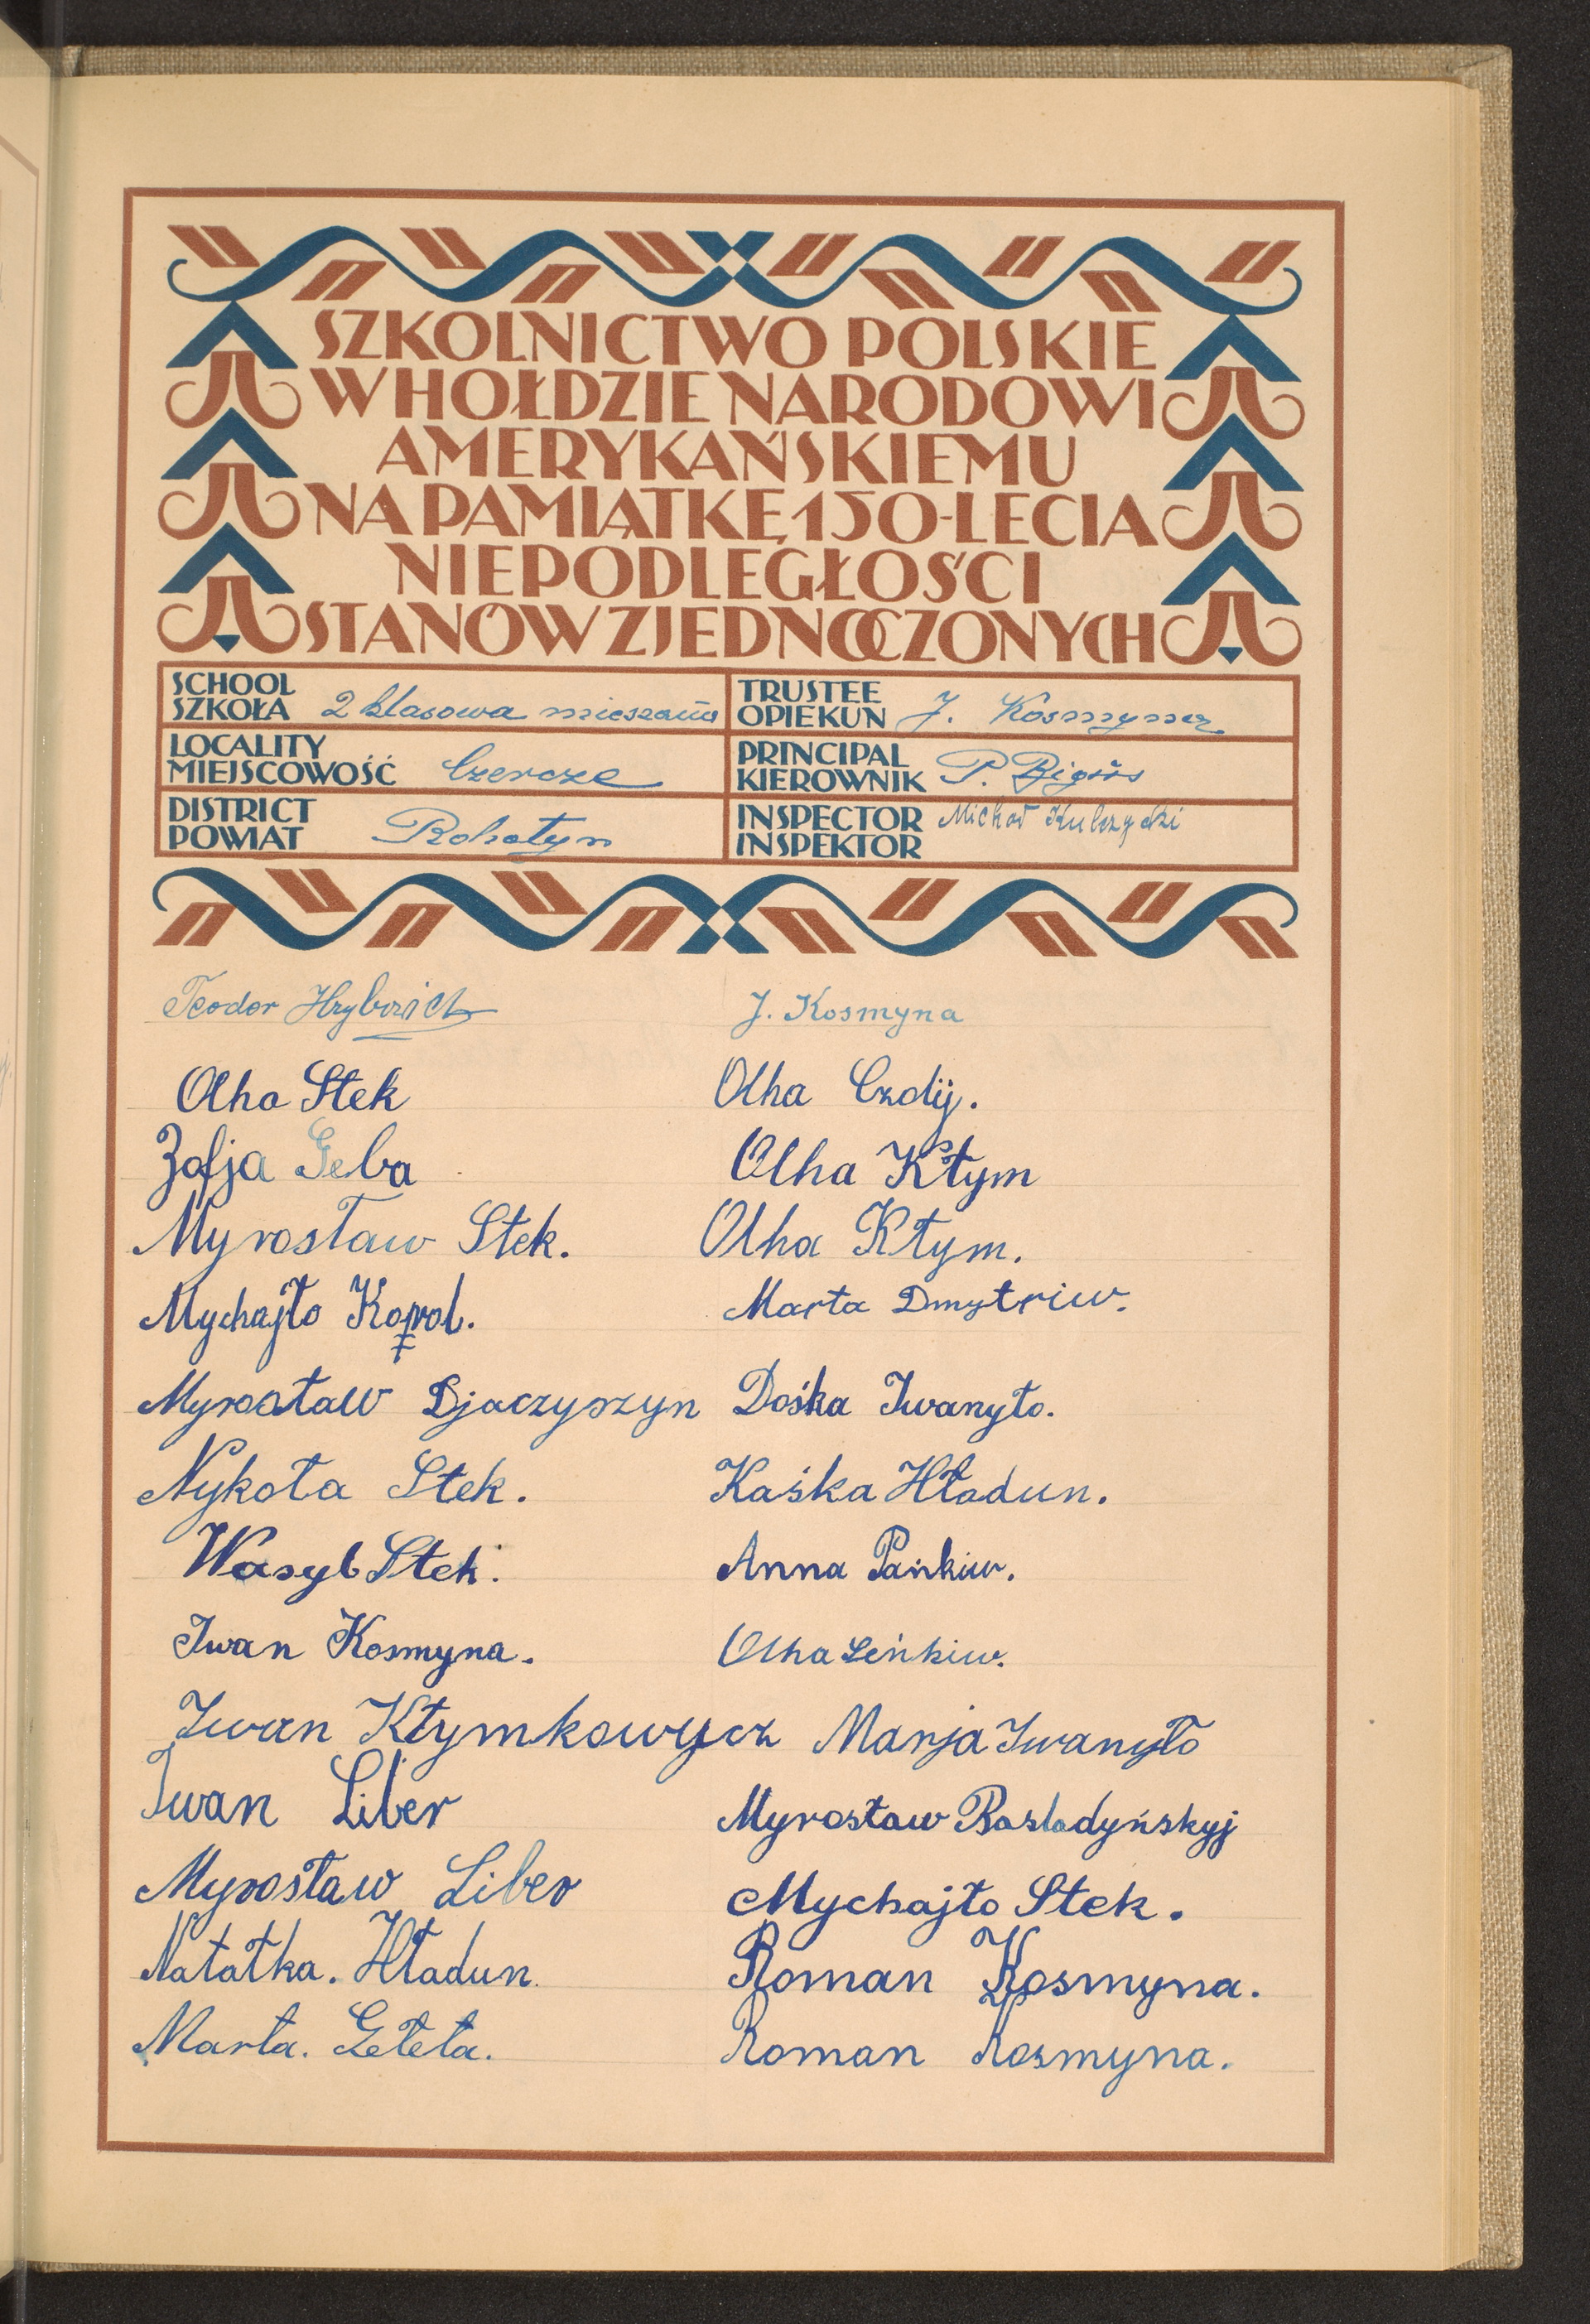 SZKOLNICTWO POLSKIE
W HOŁDZIE NARODOWI
AMERYKAŃSKIEMU
NA PAMIĄTKĘ 150-LECIA
NIEPODLEGŁOŚCI
STANÓW ZJEDNOCZONYCH
SCHOOL
SZKOŁA 2 klasowa mieszana
TRUSTEE
OPIEKUN J. Kosmyna
LOCALITY
MIEJSCOWOŚĆ Czercze
PRINCIPAL
KIEROWNIK P.
DISTRICT
POWIAT Rohatyn
INSPECTOR Michał Kulczycki
INSPEKTOR
Teodor
J. Kosmyna
Olha Stek
Olha Czdij.
Zofja Geba
Olha Kłym
Myrosław Stek.
Olha Kłym.
Mychajło Kowal.
Marta Dmytriw.
Myrosław Djaczyszyn
Dośka Iwanyło.
Nykoła Stek.
Kaśka Hładun.
Wasyl Stek.
Anna Pańkiw.
Iwan Kosmyna.
Olha Leńkiw.
Iwan Kłymkowycz
Marja Iwanyło
Iwan Liber
Myrosław Basladyńskyj
Myrosław Liber
Mychajło Stek.
Natałka. Hładun.
Roman Kosmyna.
Marta. Geleta.
Roman Kosmyna.